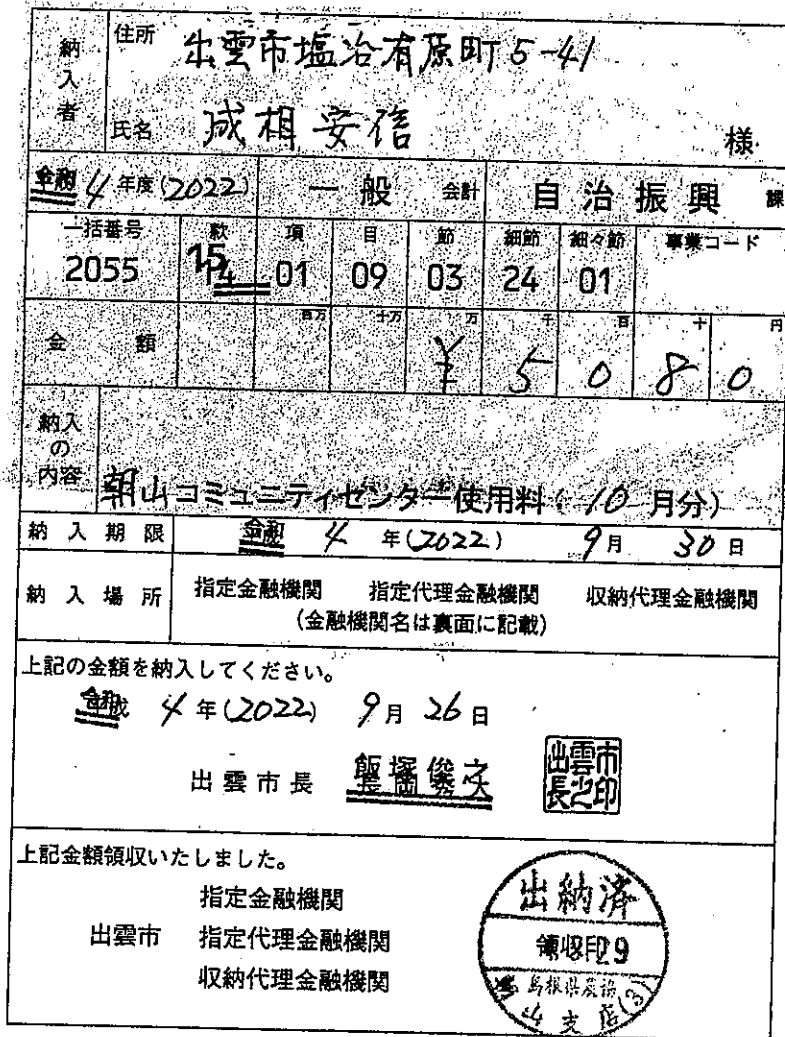 納入者
住所 出雲市塩冶有原町5-41
氏名 成相安信 様
令和 4 年度(2022) 一般 会計 自治振興 課
一括番号 款 項 目 節 細節 細々節 事業コード
2055 15 01 09 03 24 01
百万 十万 万 千 百 十 円
金額 ¥ 5 0 8 0
納入の内容
朝山コミュニティセンター使用料(10月分)
納入期限 令和 4 年(2022) 9月 30日
納入場所 指定金融機関 指定代理金融機関 収納代理金融機関
(金融機関名は裏面に記載)
上記の金額を納入してください。
令和 4 年(2022) 9月 26日
出雲市長 飯塚俊之
出雲市長之印
上記金額領収いたしました。
指定金融機関
出雲市 指定代理金融機関
収納代理金融機関
出納済
領収印
島根県農協
山支店(3)